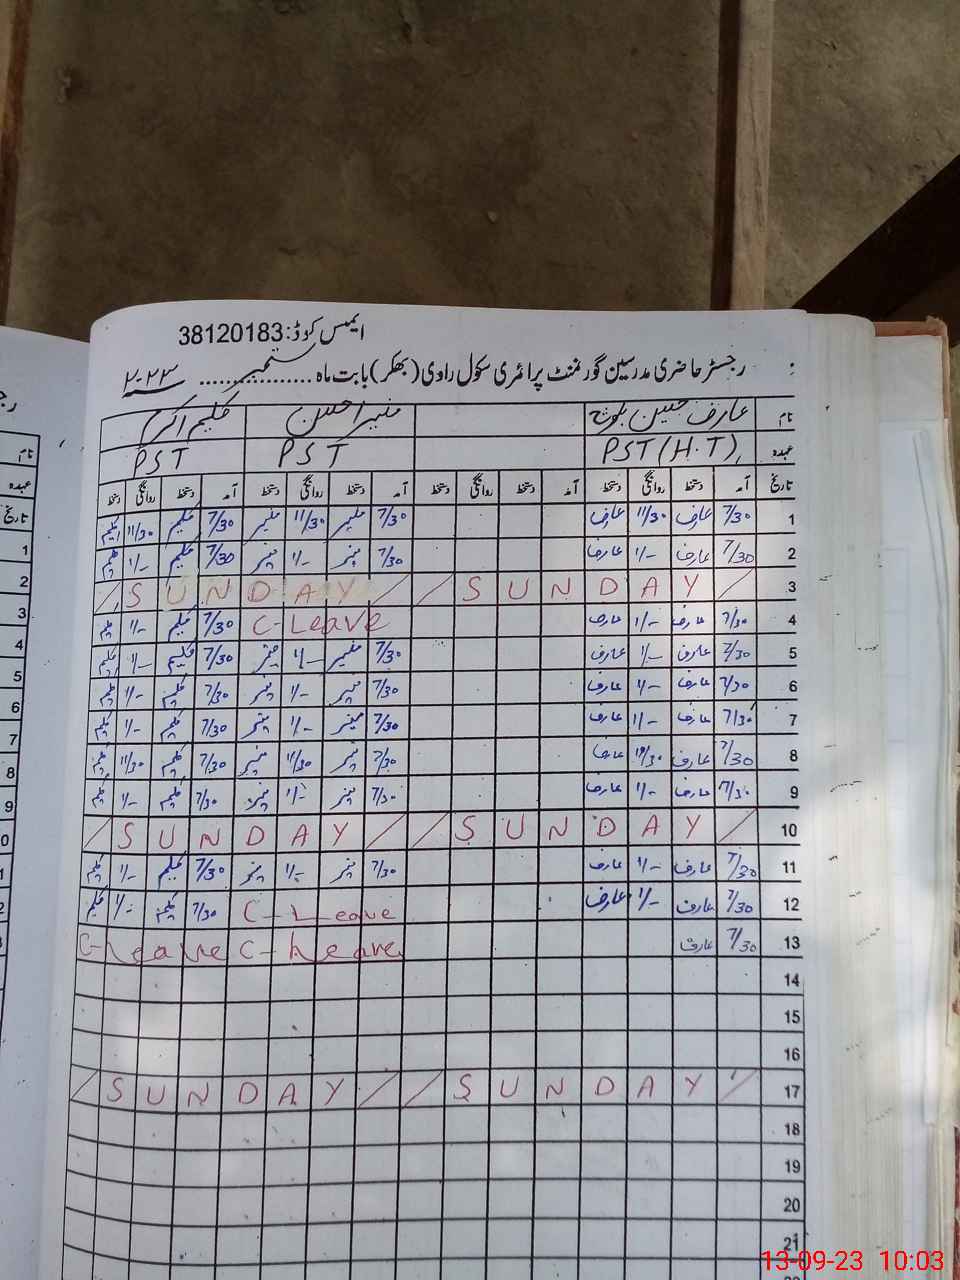 ایمس کوڈ: 38120183
رجسٹر حاضری مدرسین گورنمنٹ پرائمری سکول راوی (بھکر) بابت ماہ ستمبر ۲۰۲۳
نام عارف حسین بلوچ منیر احسن کلیم اکرم
عہدہ PST (H.T) PST PST
تاریخ آمد دستخط روانگی دستخط آمد دستخط روانگی دستخط آمد دستخط روانگی دستخط آمد دستخط روانگی دستخط
1 7/30 عارف 11/30 عارف 7/30 منیر 11/30 منیر 7/30 کلیم 11/30 کلیم
2 7/30 عارف 1/- عارف 7/30 منیر 1/- منیر 7/30 کلیم 1/- کلیم
/ S U N D A Y / / S U N D A Y / 3
4 7/30 عارف 1/- عارف C-Leave 7/30 کلیم 1/- کلیم
5 7/30 عارف 1/- عارف 7/30 منیر 1/- منیر 7/30 کلیم 1/- کلیم
6 7/30 عارف 1/- عارف 7/30 منیر 1/- منیر 7/30 کلیم 1/- کلیم
7 7/30 عارف 1/- عارف 7/30 منیر 1/- منیر 7/30 کلیم 1/- کلیم
8 7/30 عارف 11/30 عارف 7/30 منیر 11/30 منیر 7/30 کلیم 11/30 کلیم
9 7/30 عارف 1/- عارف 7/30 منیر 1/- منیر 7/30 کلیم 1/- کلیم
/ S U N D A Y / / S U N D A Y / 10
11 7/30 عارف 1/- عارف 7/30 منیر 1/- منیر 7/30 کلیم 1/- کلیم
12 7/30 عارف 1/- عارف C-Leave 7/30 کلیم 1/- کلیم
13 7/30 عارف C-Leave C-Leave
14
15
16
/ S U N D A Y / / S U N D A Y / 17
18
19
20
21
نام
عہدہ
تاریخ
1
2
3
4
5
6
7
8
9
13-09-23 10:03